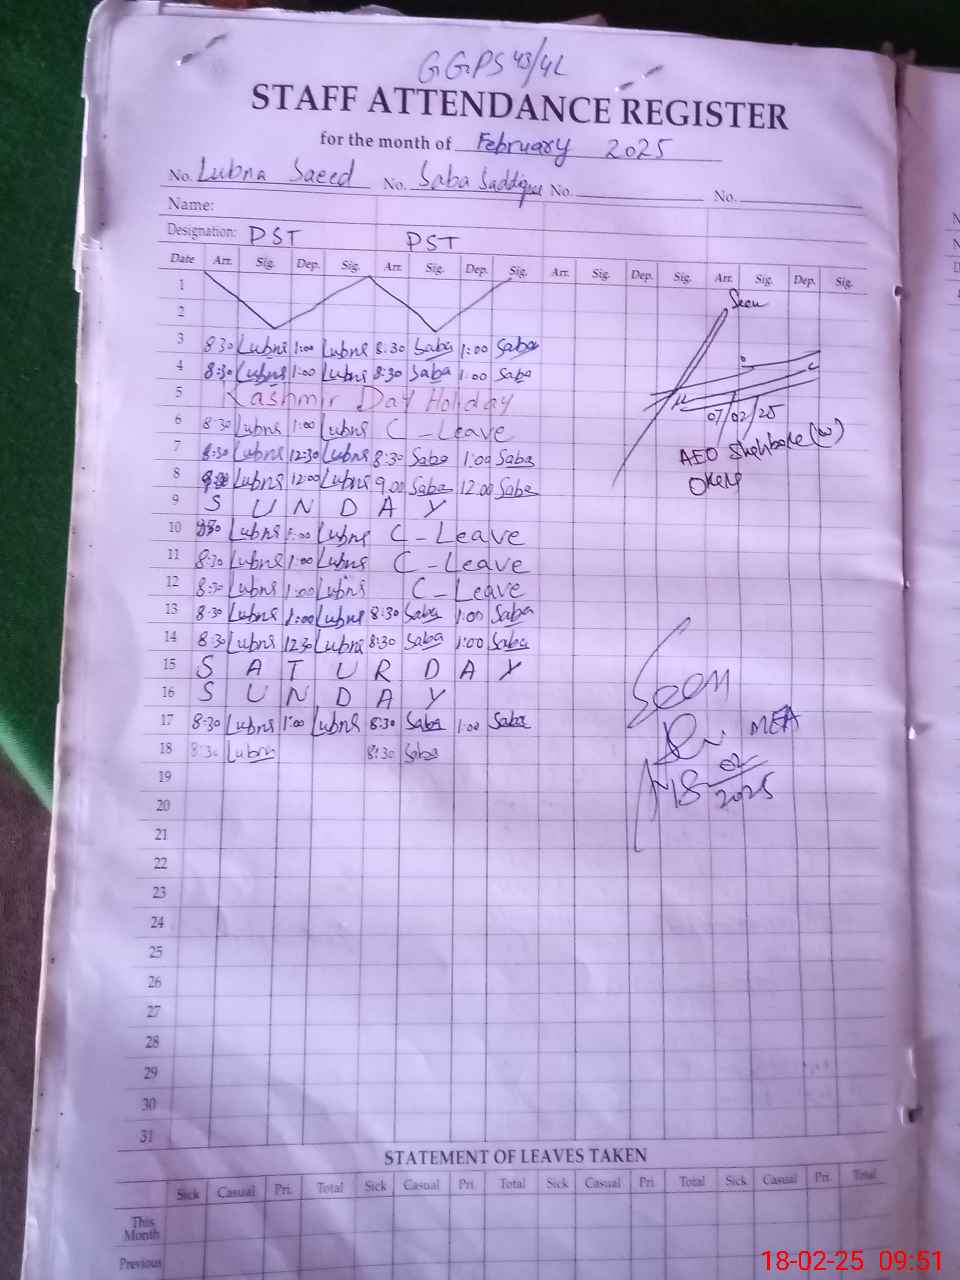 GGPS 43/4L
STAFF ATTENDANCE REGISTER
for the month of February 2025
No. Lubna Saeed No. Saba Saddique No. No.
Name:
Designation: PST PST
Date Arr. Sig. Dep. Sig. Arr. Sig. Dep. Sig. Arr. Sig. Dep. Sig. Arr. Sig. Dep. Sig.
1
2
Seen
3 8:30 Lubna 1:00 Lubna 8:30 Saba 1:00 Saba
4 8:30 Lubna 1:00 Lubna 8:30 Saba 1:00 Saba
5 Kashmir Day Holiday
07/02/25
6 8:30 Lubna 1:00 Lubna C-Leave
AEO
7 8:30 Lubna 12:30 Lubna 8:30 Saba 1:00 Saba
8 Lubna 12:00 Lubna 9:00 Saba 12:00 Saba
9 S U N D A Y
10 Lubna 1:00 Lubna C-Leave
11 8:30 Lubna 1:00 Lubna C-Leave
12 8:30 Lubna 1:00 Lubna C-Leave
13 8:30 Lubna 1:00 Lubna 8:30 Saba 1:00 Saba
14 8:30 Lubna 12:30 Lubna 8:30 Saba 1:00 Saba
15 S A T U R D A Y
Seen
16 S U N D A Y
17 8:30 Lubna 1:00 Lubna 8:30 Saba 1:00 Saba
MEA
18 8:30 Lubna 8:30 Saba
18-02-2025
19
20
21
22
23
24
25
26
27
28
29
30
31
STATEMENT OF LEAVES TAKEN
Sick Casual Pri. Total Sick Casual Pri. Total Sick Casual Pri. Total Sick Casual Pri. Total
This Month
Previous
18-02-25 09:51